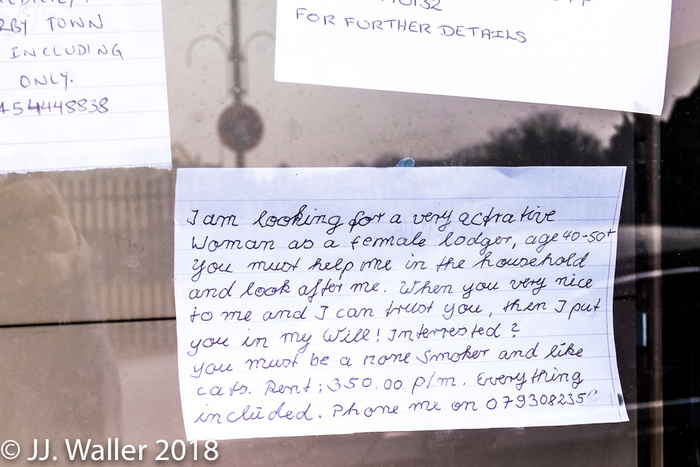 RBY TOWN
INCLUDING
ONLY.
454448838
FOR FURTHER DETAILS
I am looking for a very actrative
Woman as a female lodger, age 40-50+
You must help me in the household
and look after me. When you very nice
to me and I can trust you, then I put
you in my Will! Interrested?
you must be a none smoker and like
cats. Rent: 350.00 p/m. Everything
included. Phone me on 079308235
© JJ. Waller 2018